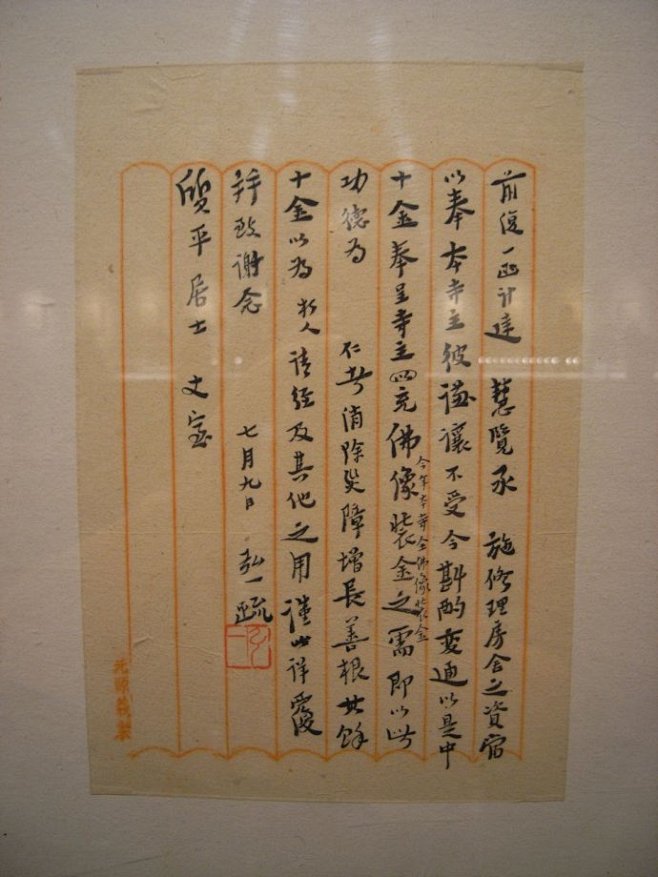 前復一函計達 慧覽承 施修理房舍之資宿
以奉本寺主彼謙讓不受今斟酌變通以是中
十金奉呈寺主四充佛像裝金之需即以此
今年本寺全佛像裝金
功德為 仁者消除災障增長善根其餘
十金以為 朽人請經及其他之用謹此詳覆
并致謝念 七月九日 弘一疏
質平居士 文室